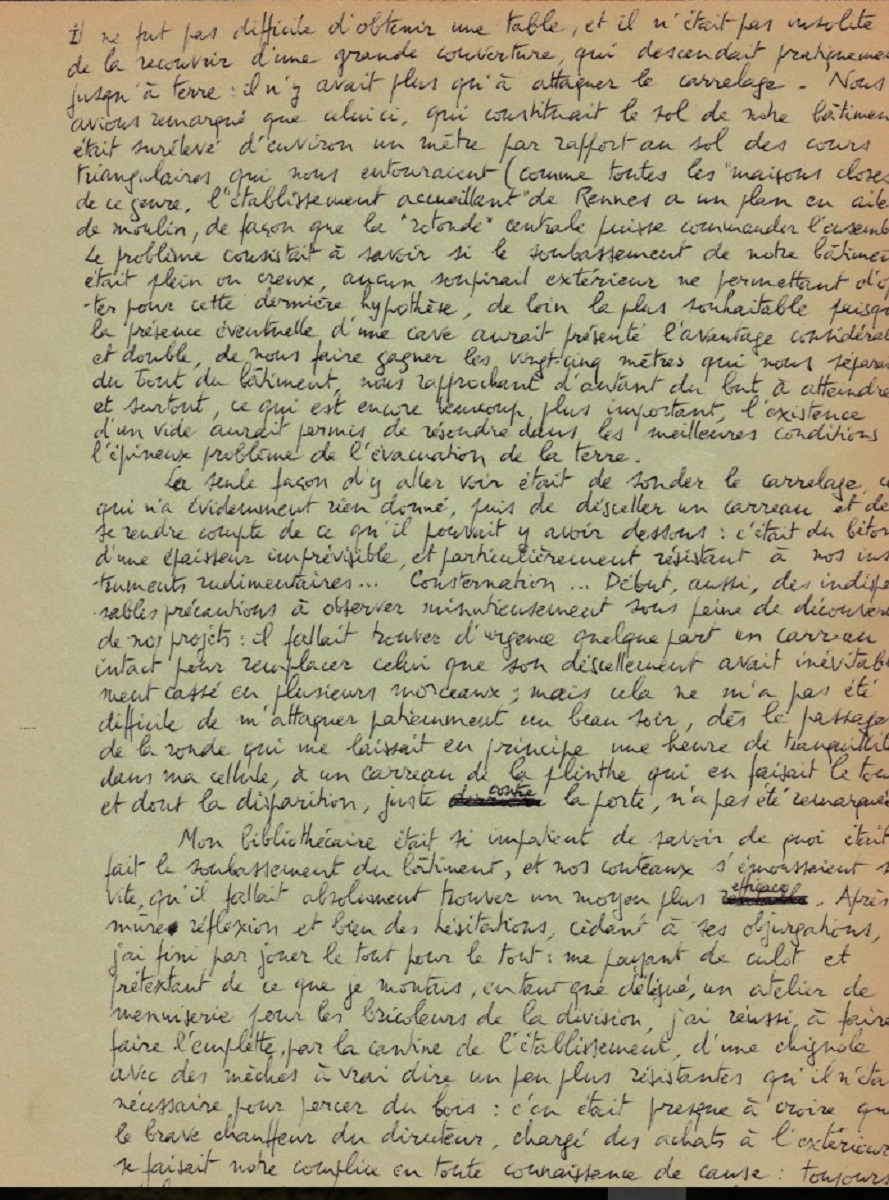 Il ne fut pas difficile d'obtenir une table, et il n'était pas insolite
de la recouvrir d'une grande couverture, qui descendait pratiqueme
jusqu'à terre : il n'y avait plus qu'à attaquer le carrelage. Nous
avions remarqué que celui ci, qui constituait le sol de notre bâtimen
était surélevé d'environ un mètre par rapport au sol des cours
triangulaires qui nous entouraient (comme toutes les "maisons closes
de ce genre, l'"établissement accueillant" de Rennes a un plan en aile
de moulin, de façon que la "rotonde" centrale puisse commander l'ensemb
Le problème consistait à savoir si le soubassement de notre bâtimen
était plein ou creux, aucun soupirail extérieur ne permettant d'o
-ter pour cette dernière hypothèse, de loin la plus souhaitable puisqu
la présence éventuelle d'une cave aurait présenté l'avantage considérab
et double, de nous faire gagner les vingt-cinq mètres qui nous sépara
du bout du bâtiment, nous rapprochant d'autant du but à atteindre
et surtout, ce qui est encore beaucoup plus important, l'existence
d'un vide aurait permis de résoudre dans les meilleures conditions
l'épineux problème de l'évacuation de la terre.
La seule façon d'y aller voir était de sonder le carrelage, c
qui n'a évidemment rien donné, puis de désceller un carreau et de
se rendre compte de ce qu'il pouvait y avoir dessous : c'était du béton
d'une épaisseur imprévisible, et particulièrement résistant à nos ins
-truments rudimentaires... Consternation... Début, aussi, des indispe
-sables précautions à observer minutieusement sous peine de découver
de nos projets : il fallait trouver d'urgence quelque part un carreau
intact pour remplacer celui que son déscellement avait inévitabl
ment cassé en plusieurs morceaux ; mais cela ne m'a pas été
difficile de m'attaquer patiemment un beau soir, dès le passage
de la ronde qui me laissait en principe une heure de tranquillit
dans ma cellule, à un carreau de la plinthe qui en faisait le tou
et dont la disparition, juste contre la porte, n'a pas été remarquée
Mon bibliothécaire était si impatient de savoir de quoi était
fait le soubassement du bâtiment, et nos couteaux s'émoussaient s
vite, qu'il fallait absolument trouver un moyen plus efficace. Après
mûre réflexion et bien des hésitations, cédant à ses objurgations,
j'ai fini par jouer le tout pour le tout : me payant de culot et
prétextant de ce que je montais, en tant que délégué, un atelier de
menuiserie pour les bricoleurs de la division, j'ai réussi à faire
faire l'emplette, par la cantine de l'établissement, d'une chignole
avec des mèches à vrai dire un peu plus résistantes qu'il n'éta
nécessaire pour percer du bois : c'en était presque à croire qu
le brave chauffeur du directeur, chargé des achats à l'extérieur
se faisait notre complice en toute connaissance de cause : toujours